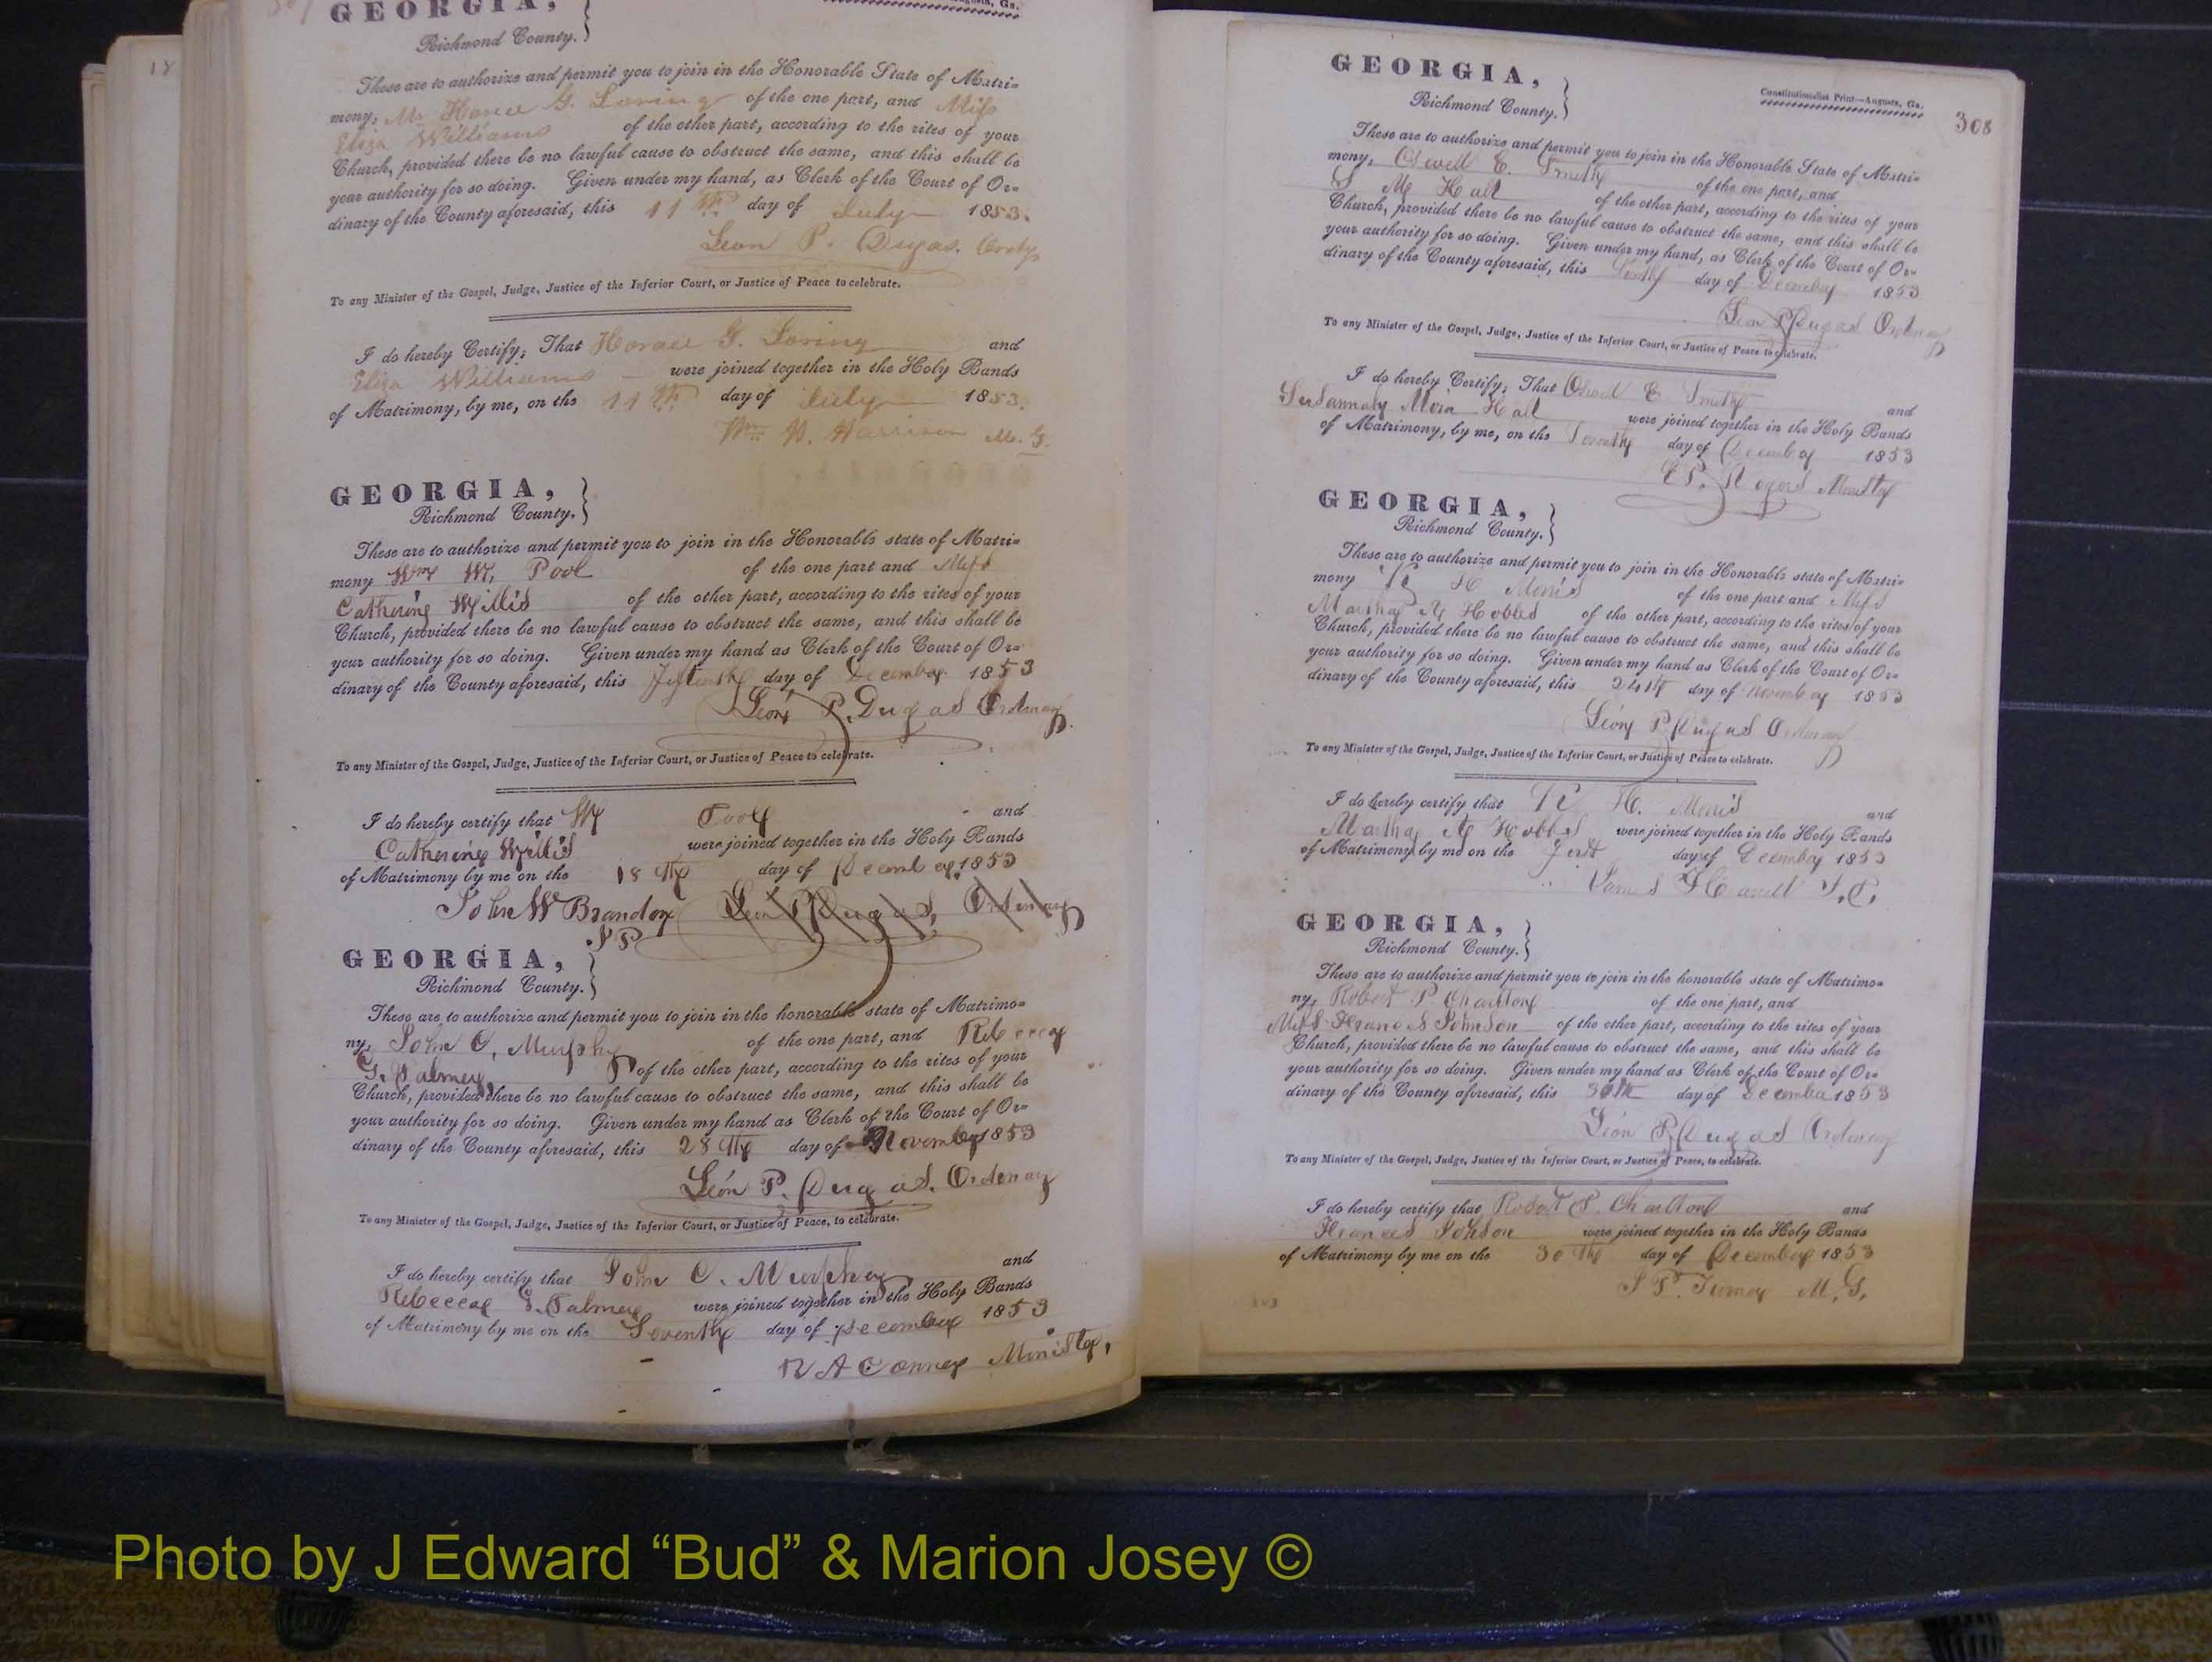 GEORGIA,
Richmond County.
These are to authorize and permit you to join in the Honorable State of Matri-
mony, Mr Horace G. Loring of the one part, and Miss
Eliza Williams of the other part, according to the rites of your
Church, provided there be no lawful cause to obstruct the same, and this shall be
your authority for so doing. Given under my hand, as Clerk of the Court of Or-
dinary of the County aforesaid, this 11th day of July 1853.
Leon P. Dugas. Ordy
To any Minister of the Gospel, Judge, Justice of the Inferior Court, or Justice of Peace to celebrate.
I do hereby Certify; That Horace G. Loring and
Eliza Williams were joined together in the Holy Bands
of Matrimony, by me, on the 11th day of July 1853.
Wm H. Harrison M. G.
GEORGIA,
Richmond County.
These are to authorize and permit you to join in the Honorable state of Matri-
mony Wm W. Pool of the one part and Miss
Catherine Willis of the other part, according to the rites of your
Church, provided there be no lawful cause to obstruct the same, and this shall be
your authority for so doing. Given under my hand as Clerk of the Court of Or-
dinary of the County aforesaid, this Fifteenth day of December 1853
Leon P. Dugas Ordinary
To any Minister of the Gospel, Judge, Justice of the Inferior Court, or Justice of Peace to celebrate.
I do hereby certify that Wm Pool and
Catherine Willis were joined together in the Holy Bands
of Matrimony by me on the 18th day of December 1853
John W Brandon Leon P Dugas, Ordinary
J P
GEORGIA,
Richmond County.
These are to authorize and permit you to join in the honorable state of Matrimo-
ny, John C. Murphy of the one part, and Rebecca
G. Palmer of the other part, according to the rites of your
Church, provided there be no lawful cause to obstruct the same, and this shall be
your authority for so doing. Given under my hand as Clerk of the Court of Or-
dinary of the County aforesaid, this 28th day of November 1853
Leon P. Dugas. Ordinary
To any Minister of the Gospel, Judge, Justice of the Inferior Court, or Justice of Peace, to celebrate.
I do hereby certify that John C. Murphey and
Rebecca G. Palmer were joined together in the Holy Bands
of Matrimony by me on the Seventh day of December 1853
R A Conner Minister,
18
Constitutionalist Print—Augusta, Ga.
308
GEORGIA,
Richmond County.
These are to authorize and permit you to join in the Honorable State of Matri-
mony, E. Smith of the one part, and
S M Hall of the other part, according to the rites of your
Church, provided there be no lawful cause to obstruct the same, and this shall be
your authority for so doing. Given under my hand, as Clerk of the Court of Or-
dinary of the County aforesaid, this day of December 1853
Leon P Dugas Ordinary
To any Minister of the Gospel, Judge, Justice of the Inferior Court, or Justice of Peace to celebrate.
I do hereby Certify; That E Smith and
Susannah Hall were joined together in the Holy Bands
of Matrimony, by me, on the day of December 1853
E P. Rogers Minister
GEORGIA,
Richmond County.
These are to authorize and permit you to join in the Honorable state of Matri-
mony H Morris of the one part and Miss
Martha A Hobbs of the other part, according to the rites of your
Church, provided there be no lawful cause to obstruct the same, and this shall be
your authority for so doing. Given under my hand as Clerk of the Court of Or-
dinary of the County aforesaid, this 24th day of November 1853
Leon P Dugas Ordinary
To any Minister of the Gospel, Judge, Justice of the Inferior Court, or Justice of Peace to celebrate.
I do hereby certify that H. Morris and
Martha A Hobbs were joined together in the Holy Bands
of Matrimony by me on the first day of December 1853
James Harrell J. P.
GEORGIA,
Richmond County.
These are to authorize and permit you to join in the honorable state of Matrimo-
ny, Robert P Charlton of the one part, and
Miss Frances Johnson of the other part, according to the rites of your
Church, provided there be no lawful cause to obstruct the same, and this shall be
your authority for so doing. Given under my hand as Clerk of the Court of Or-
dinary of the County aforesaid, this 30th day of December 1853
Leon P Dugas Ordinary
To any Minister of the Gospel, Judge, Justice of the Inferior Court, or Justice of Peace, to celebrate.
I do hereby certify that Robert P. Charlton and
Frances Johson were joined together in the Holy Bands
of Matrimony by me on the 30th day of December 1853
J P. Turner M. G.
Photo by J Edward “Bud” & Marion Josey ©